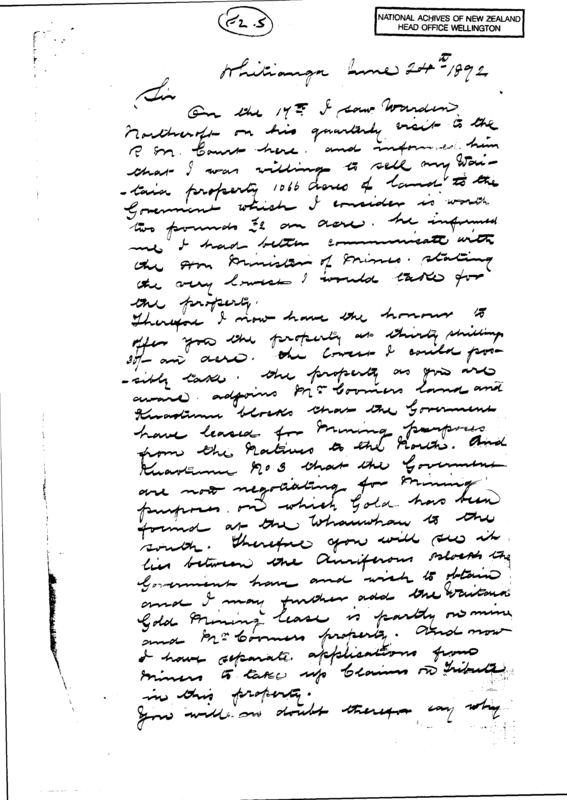 E2.5
NATIONAL ACHIVES OF NEW ZEALAND
HEAD OFFICE WELLINGTON
Whitianga June 24th 1892
Sir
On the 17th I saw Warden
Northcroft on his quarterly visit to the
R M. Court here. and informed him
that I was willing to sell my Wai-
-taia property 1066 acres of land to the
Goverment which I consider is worth
two pounds £2 an acre. he informed
me I had better communicate with
the Hon Minister of Mines. stating
the very lowest I would take for
the property.
Therefore I now have the honour to
offer you the property at thirty shilling
30/- an acre. the lowest I could pos-
-sibly take. the property as you are
aware adjoins Mr Coorners land and
Kuaotunu blocks that the Goverment
have leased for Mining purposes
from the Natives to the North. And
Kuaotunu No 3 that the Goverment
are now negotiating for Mining
purposes on which Gold has been
found at the Whauwhau to the
south. Therefore you will see it
lies between the Auriferous blocks the
Goverment have and wish to obtain
and I may further add the Waitaia
Gold Mining lease is partly on mine
and Mr Coorners property. And now
I have separate applications from
Miners to take up Claims on Tribute
in this property.
You will no doubt therefor say why